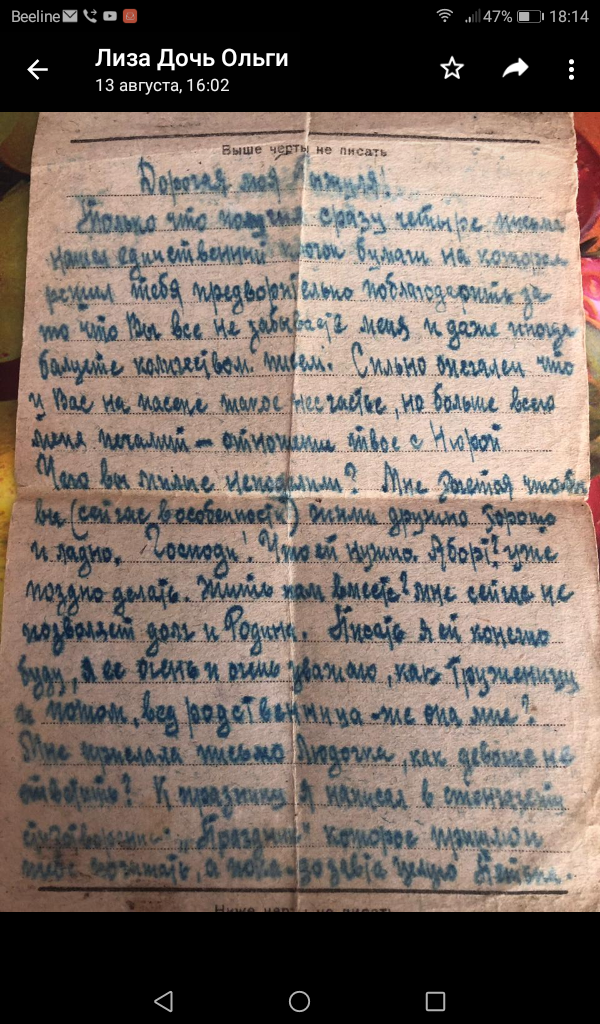 Beeline 47% 18:14
Лиза Дочь Ольги
13 августа, 16:02
Выше черты не писать
Дорогая моя
Только что получил сразу четыре письма
нашел единственный клочок бумаги на котором
решил тебя предворительно поблагодарить за
то что Вы все не забываете меня и даже иногда
балуете количеством писем. Сильно опечален что
у Вас на пасеке такое несчастье, но больше всего
меня печалит – отношение твое с Нюрой
Чего вы милые неподелили? Мне хочется чтобы
вы (сейчас в особенности) жили дружно хорошо
и ладно. Господи! Что ей нужно. Аборт? уже
поздно делать. Жить нам вместе? мне сейчас не
позволяет долг и Родина. Писать я ей конечно
буду, я ее очень и очень уважаю, как труженицу
и потом, вед родственница-же она мне?
Мне прислала письмо Людочка, как девочке не
ответить? К празднику я написал в стенгазету
"Праздник" которое пришлю
тебе почитать, а пока-до завта целую
Ниже черты не писать